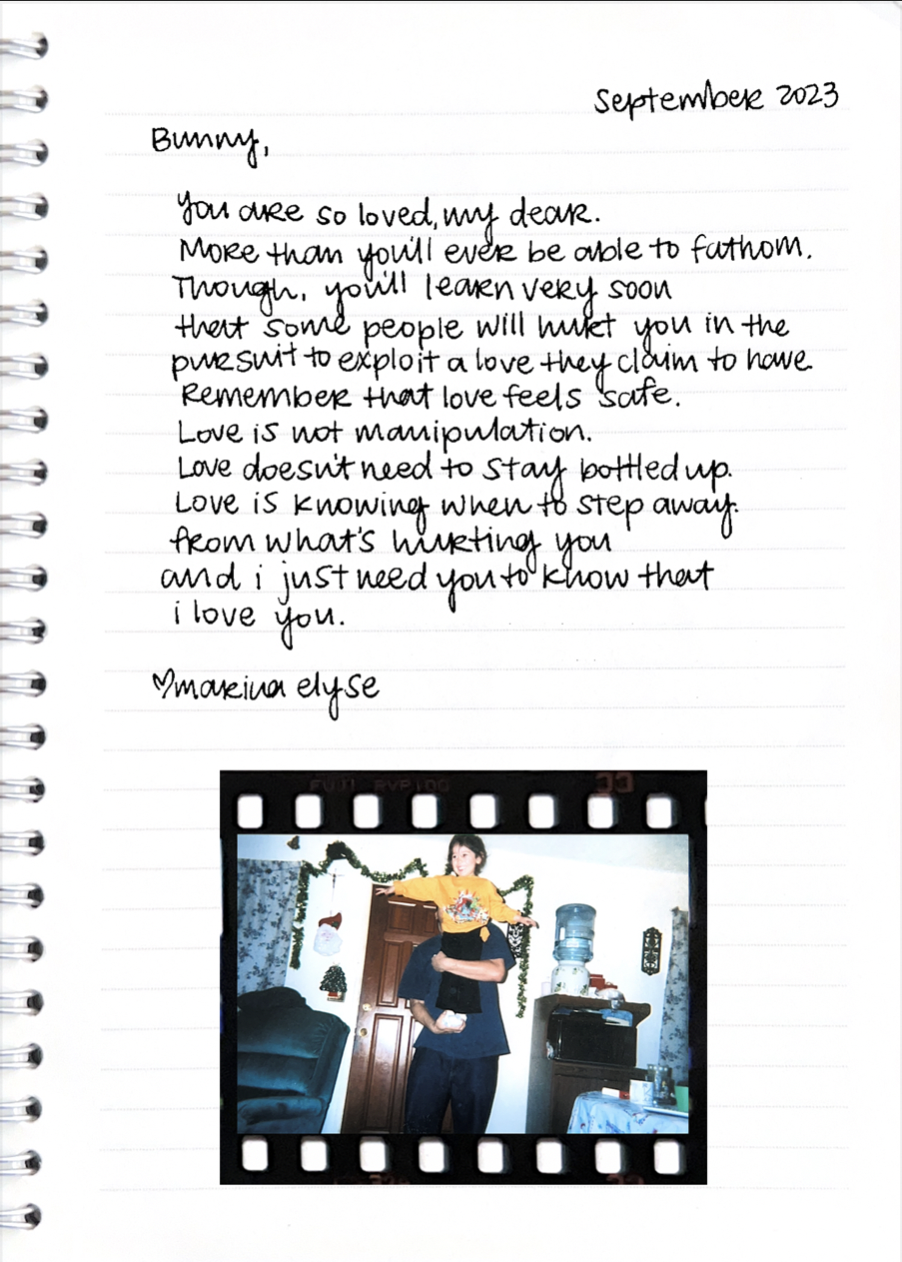 September 2023
Bunny,
You are so loved, my dear.
More than you'll ever be able to fathom.
Though, you'll learn very soon
that some people will hurt you in the
pursuit to exploit a love they claim to have.
Remember that love feels safe.
Love is not manipulation.
Love doesn't need to stay bottled up.
Love is knowing when to step away.
from what's hurting you
and i just need you to know that
i love you.
♡marina elyse
FUJI RVP100 33
33